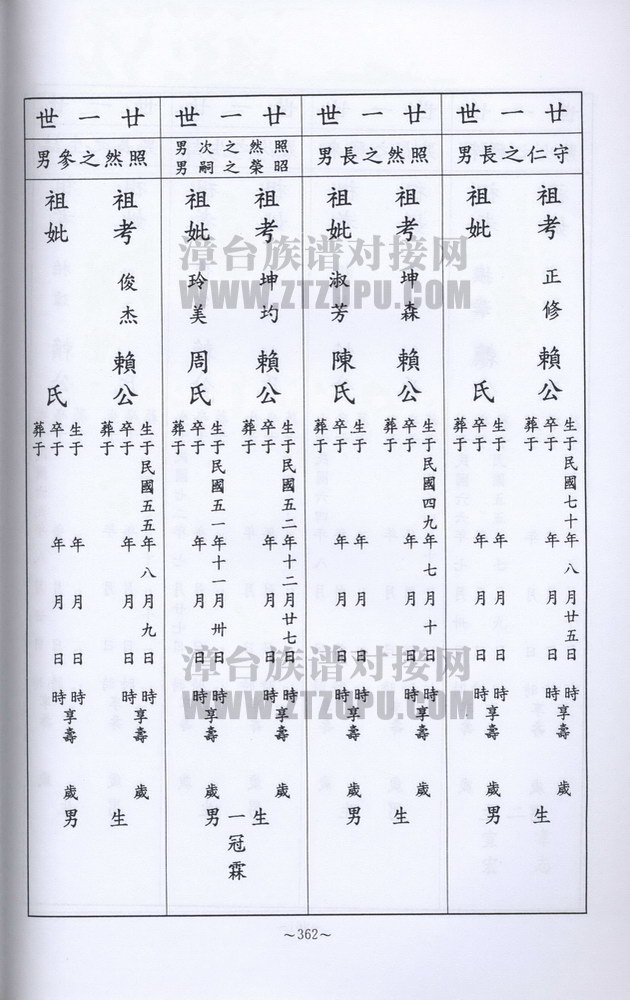 廿一世
守仁之長男
祖考 正修 賴公
生于民國七十年八月廿五日時享壽歲
卒于年月日時
葬于
祖妣 氏
生于年月日時享壽歲
卒于年月日時
葬于
生男
廿一世
照然之長男
祖考 坤森 賴公
生于民國四九年七月十日時享壽歲
卒于年月日時
葬于
祖妣 淑芳 陳氏
生于年月日時享壽歲
卒于年月日時
葬于
生男
廿一世
照然之次男
昭榮之嗣男
祖考 坤圴 賴公
生于民國五二年十二月廿七日時享壽歲
卒于年月日時
葬于
祖妣 玲美 周氏
生于民國五一年十一月卅日時享壽歲
卒于年月日時
葬于
生男
一冠霖
廿一世
照然之參男
祖考 俊杰 賴公
生于民國五五年八月九日時享壽歲
卒于年月日時
葬于
祖妣 氏
生于年月日時享壽歲
卒于年月日時
葬于
生男
~362~
漳台族谱对接网
WWW.ZTZUPU.COM
漳台族谱对接网
WWW.ZTZUPU.COM